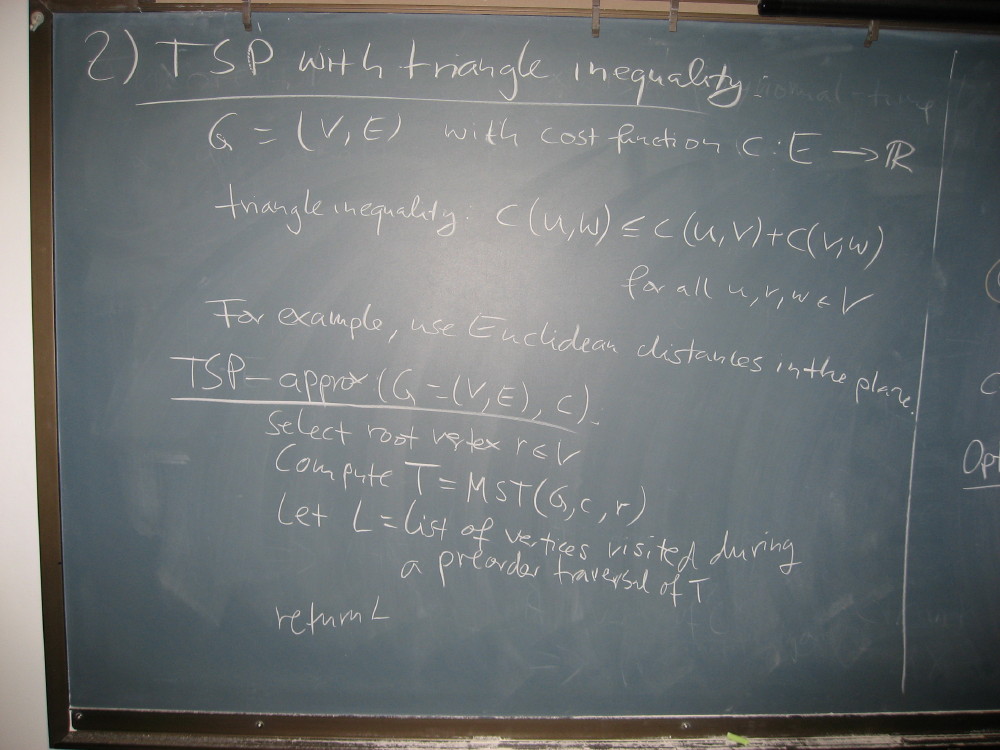 2) TSP with triangle inequality.
G = (V, E) with cost function c : E → ℝ
triangle inequality: c(u,w) ≤ c(u,v)+c(v,w)
for all u,v,w ∈ V
For example, use Euclidean distances in the plane.
TSP-approx (G=(V,E), c).
Select root vertex r ∈ V
Compute T = MST(G,c,r)
Let L = list of vertices visited during
a preorder traversal of T
return L
Opt